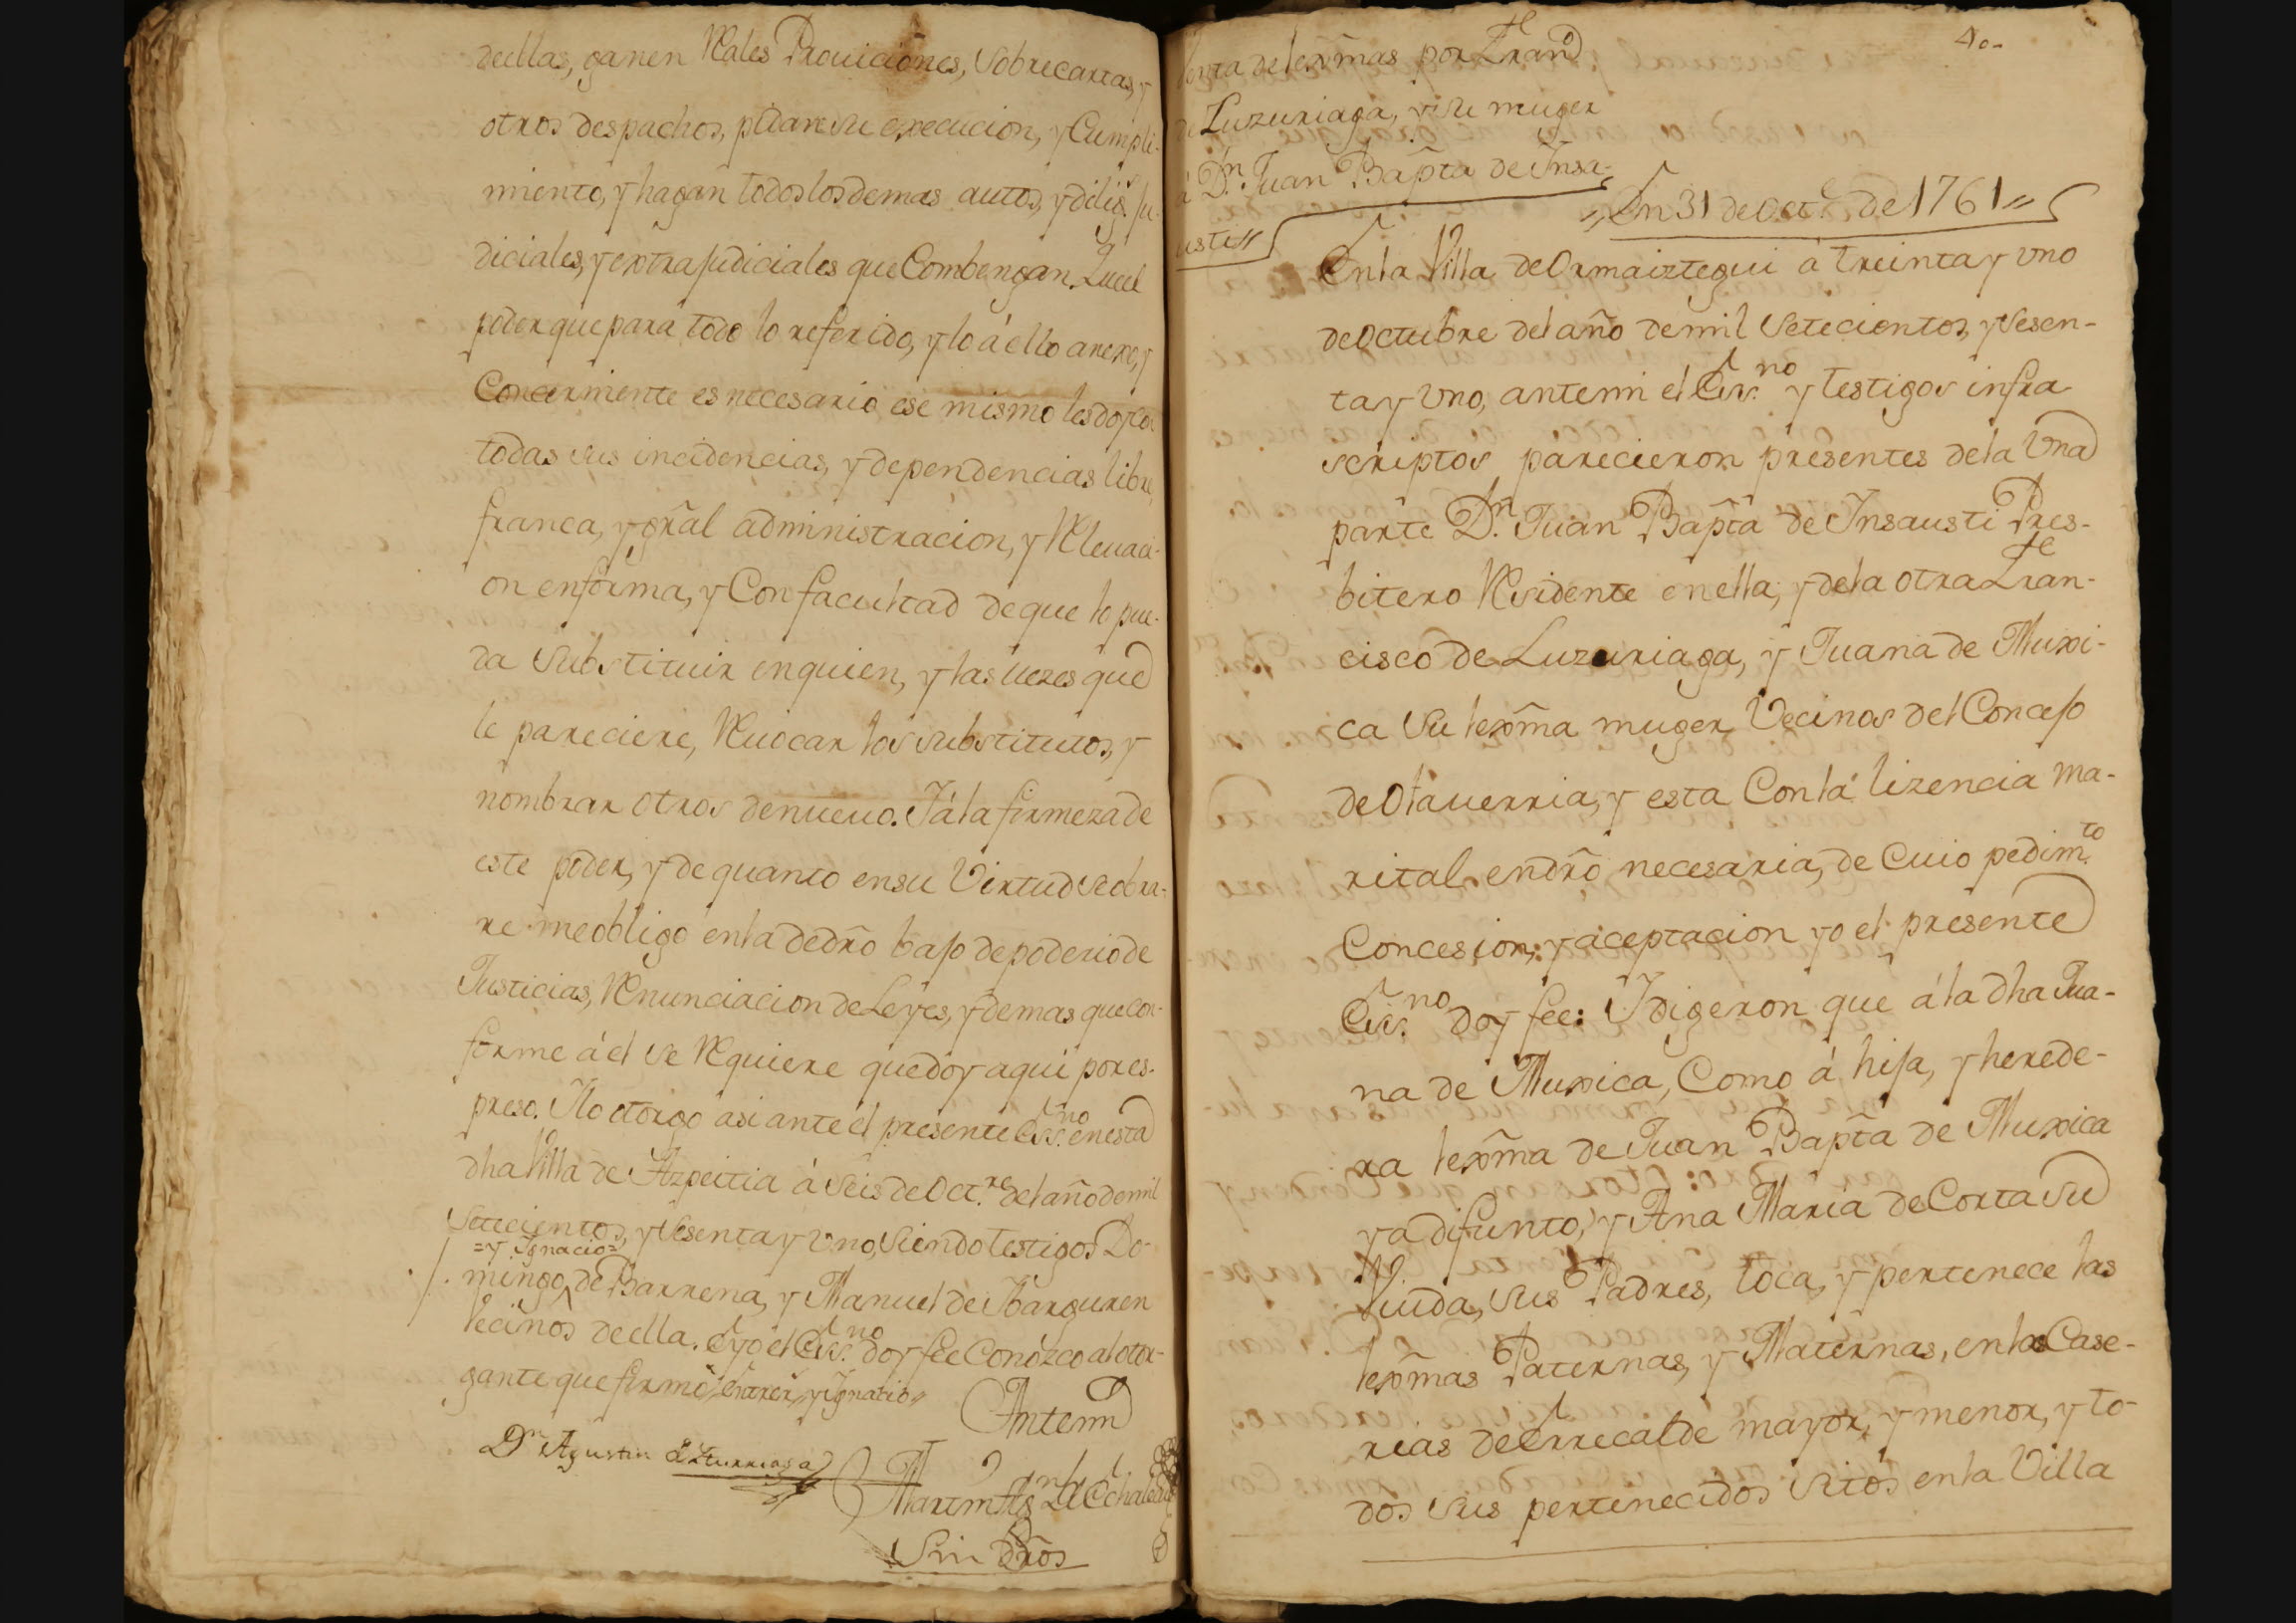 deellas, ganen Rales Prouiciones, Sobrecartas, y
otros despachos, pidan su execucion, y Cumpli-
miento, y hagan todos los demas autos, y dilig.s ju-
diciales, y extrajudiciales que Combengan. Que el
poder que para todo lo referido, y lo á ello anexo, y
Concerniente es necesario ese mismo les doy con
todas sus incidencias, y dependencias libre,
franca, y gñal administracion, y Releuaci-
on en forma, y Con facultad de que lo pue-
da Substituir en quien, y las uezes que
le pareciere, Reuocar los substitutos, y
nombrar otros denueuo. Y á la firmeza de
este poder, y de quanto en su Virtud se obra-
re me obligo en la de dr̃o bajo de poderio de
Justicias, Renunciacion de Leyes, y demas que con-
forme á el se Requiere que doy aqui por es-
preso. Y lo otorgo asi ante él presente Ess.no en esta
dha Villa de Azpeitia á Seis de Oct.re del año de mil
Setecientos, y Sesenta y Uno, Siendo testigos Do-
=y Ignacio=
mingo, de Barrena, y Manuel de Ibarguren
Vecinos de ella. E yo el Ess.no doy feé Conozco al otor-
gante que firmó, Entrerr.s y Ignatio
Ante mi
Dn Agustin de Iturriaga
Martin
Sin Dr̃os
40-
de lexm̃as por Fran.co
de Luzuriaga, y su muger
á Dn Juan Bapt̃a de Insa-
usti
En 31 de Oct.e de 1761
En la Villa de Ormaiztegui á treinta y Uno
de Octubre del año de mil Setecientos, y Sesen-
ta y Uno, ante mi el Ess.no y testigos infra
scriptos parecieron presentes de la Una
parte Dn. Juan Bapt̃a de Insausti Pres-
bitero Residente en ella; y de la otra Fran-
cisco de Luzuriaga, y Juana de Muxi-
ca Su lexm̃a muger Vecinos del Concejo
de Olauerria, y esta Con lá lizencia ma-
rital en dr̃o necesaria, de Cuio pedim.to
Concesion, y aceptacion yo el presente
Ess.no doy feé: Y digeron que á la dha Jua-
na de Muxica, Como á hija, y herede-
ra lexm̃a de Juan Bapt̃a de Muxica
ya difunto, y Ana Maria de Corta Su
Viuda, Sus Padres, toca, y pertenece las
lexm̃as Paternas, y Maternas, en las Case-
rias de Errecalde mayor, y menor, y to-
dos Sus pertenecidos Sitos en la Villa